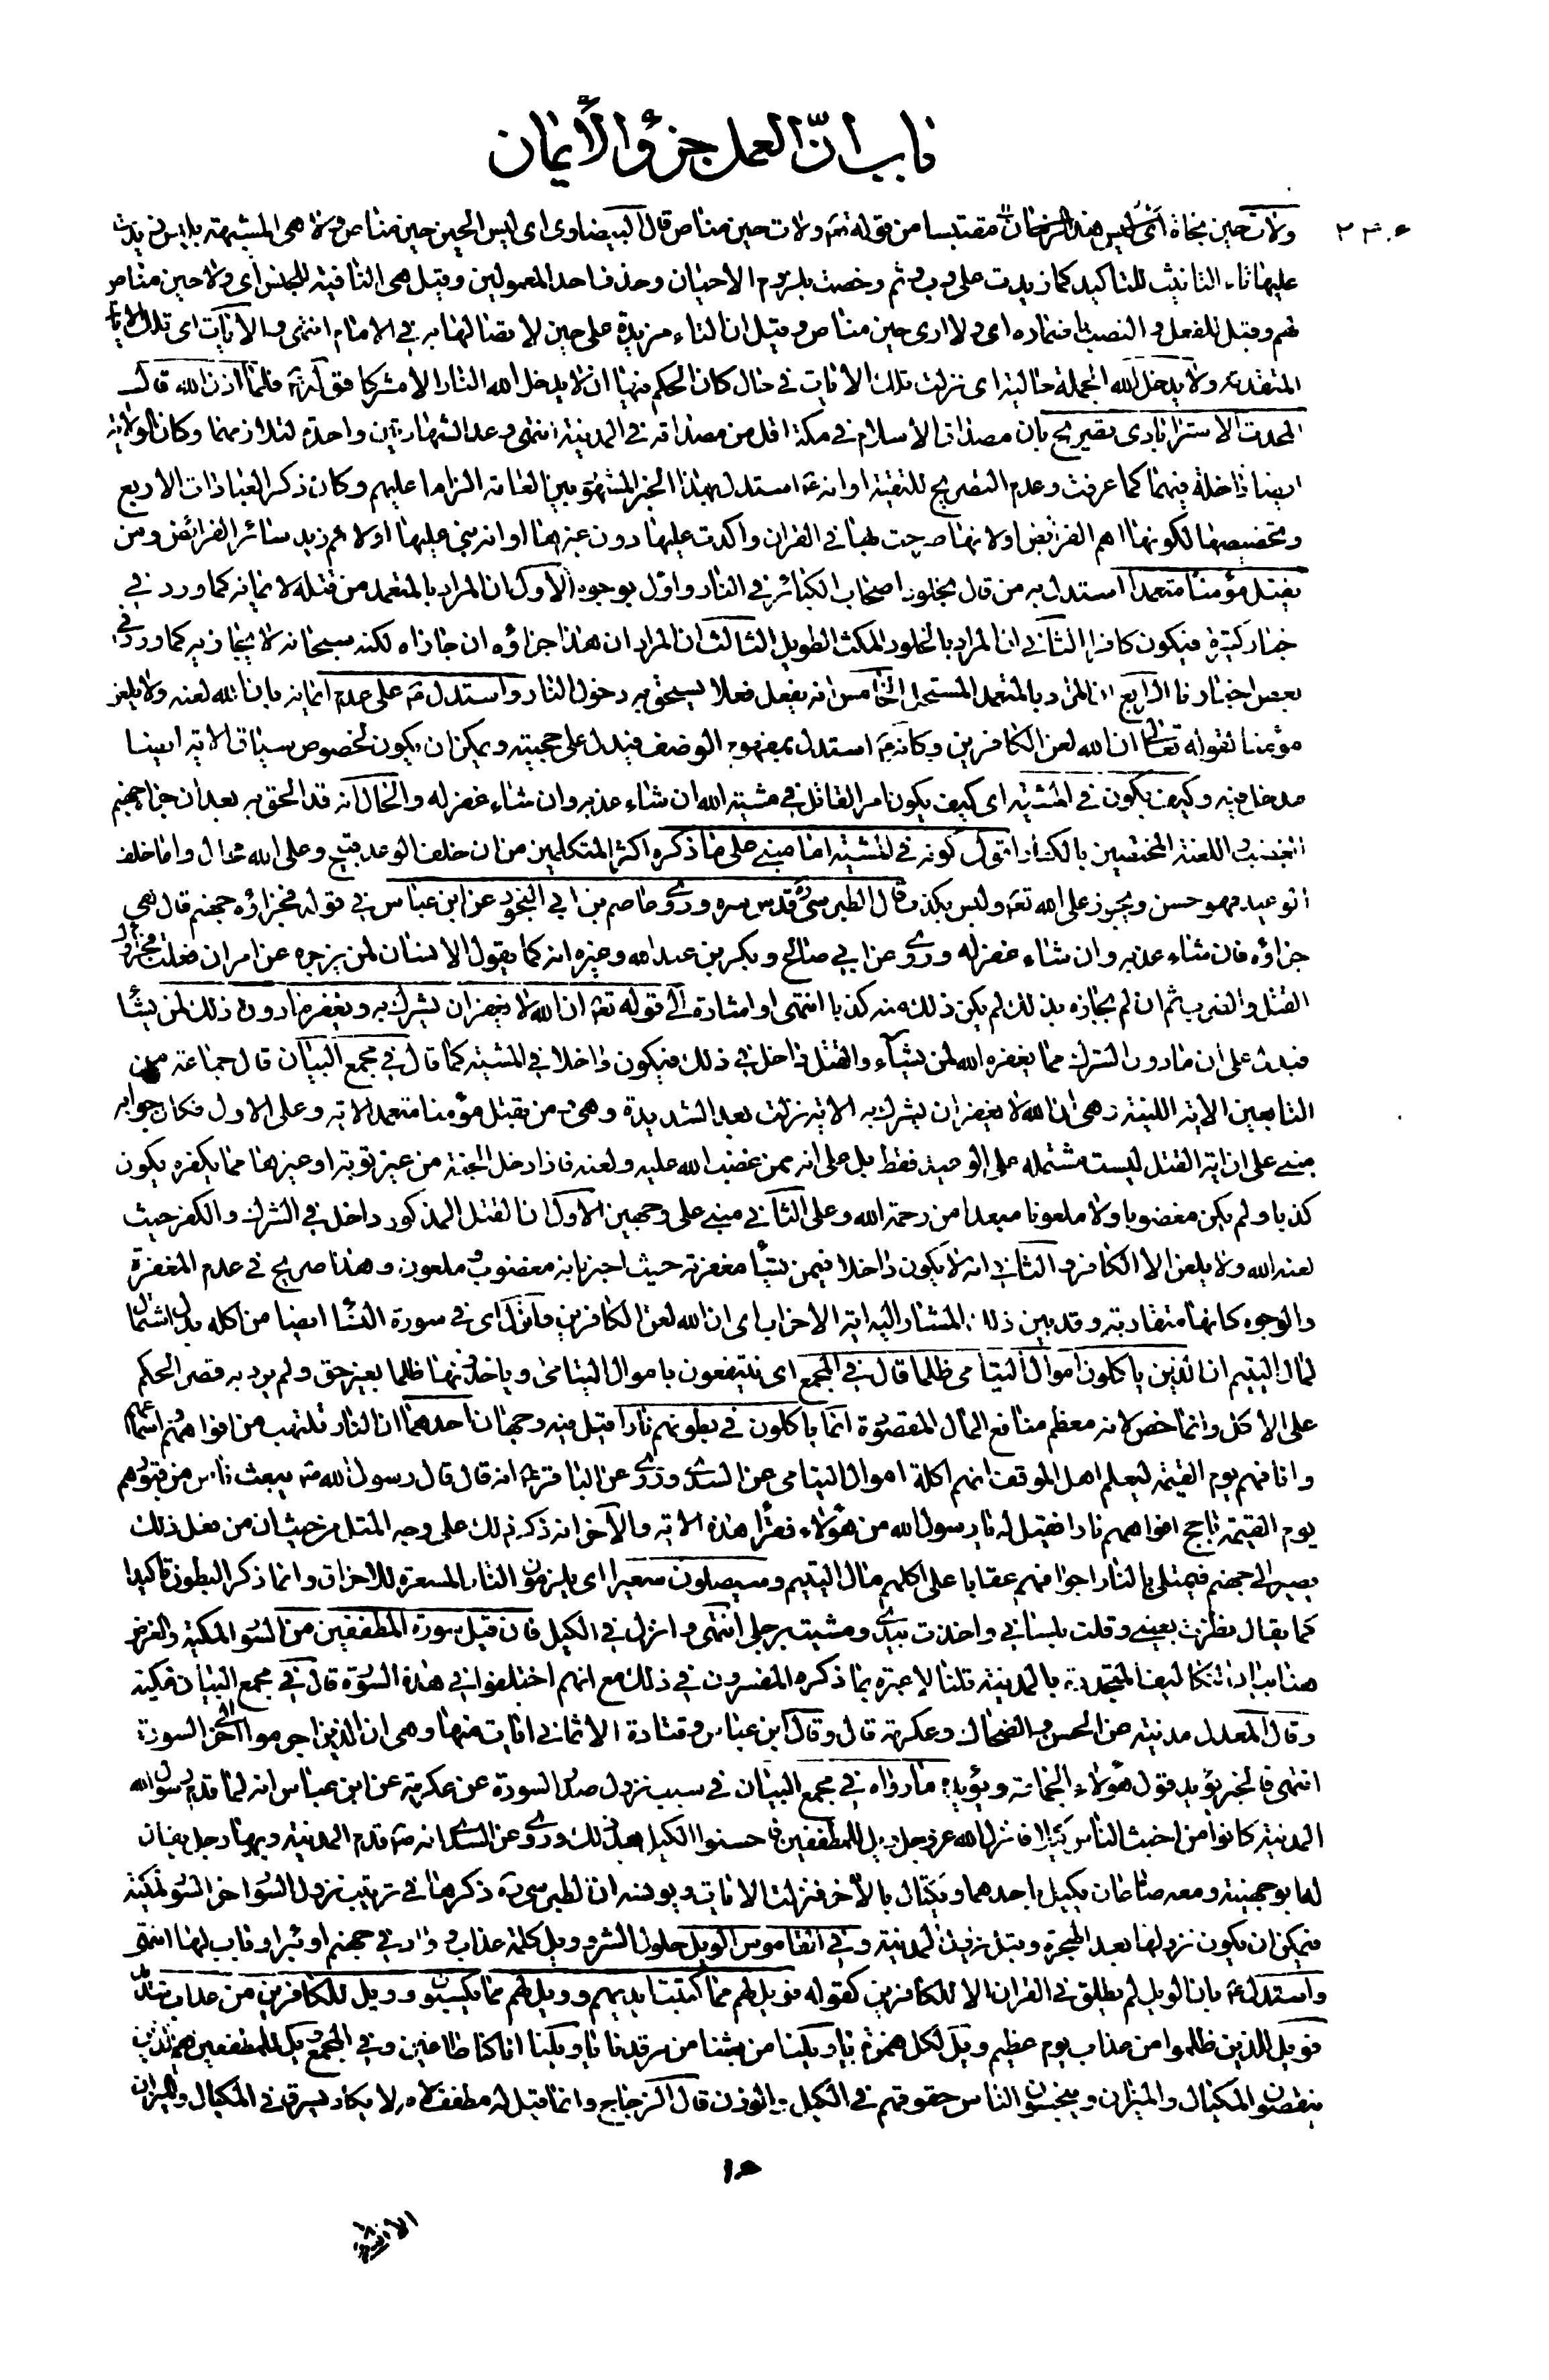 باب انّ العمل جزؤ الأيمان
٢٣٠٤
ولات حين نجاة أي ليس هذا الزمان مقتبسا من قوله تعم ولات حين مناص قال البيضاوى اى ليس الحين حين مناص ولا هى المشبهة بليس زيدت
عليها تاء التانيث للتاكيد كما زيدت على رب وثم وخصت بلزوم الاحيان وحذف احد المعمولين وقيل هى النافية للجنس اى ولا حين مناص
لهم وقيل للفعل والنصب باضماره اى ولا ارى حين مناص وقيل ان التاء مزيدة على حين لاتصالها به في الامام انتهى والآيات اى تلك الايات
المتقدمة ولا يدخل الله الجملة حالية اى نزلت تلك الايات في حال كان الحكم فيها ان لا يدخل الله النار الا مشركا فقوله فلما اذن الله قال
المحدث الاسترابادى تصريح بان مصداق الاسلام في مكة اقل من مصداقه في المدينة انتهى وعد الشهادتين واحدة لتلازمهما وكان الولاية
ايضا داخلة فيهما كما عرفت وعدم التصريح للتقية او انه ع استدل بهذا الخبر المشهور بين العامة الزاما عليهم وكان ذكر العبادات الاربع
وتخصيصها لكونها اهم الفرائض او لانها صرحت بها في القران واكدت عليها دون غيرها او انه بنى عليها اولا ثم زيد سائر الفرائض ومن
يقتل مؤمنا متعمدا استدل به من قال بخلود اصحاب الكبائر في النار واوّل بوجوه الأول ان المراد بالمتعمد من قتله لايمانه كما ورد في
اخبار كثيرة فيكون كافرا الثاني ان المراد بالخلود المكث الطويل الثالث ان المراد ان هذا جزاؤه ان جازاه لكنه سبحانه لا يجازيه كما ورد في
بعض اخبارنا الرابع ان المراد بالمتعمد المستحل الخامس انه يفعل فعلا يستحق به دخول النار واستدل ع على عدم ايمانه بان الله لعنه ولا يلعن
مؤمنا لقوله تعالى ان الله لعن الكافرين وكانه ع استدل بمفهوم الوصف فيدل على حجيته ويمكن ان يكون لخصوص سياق الاية ايضا
مدخل فيه وكيف يكون في المشية اى كيف يكون امر القاتل في مشية الله ان شاء عذبه وان شاء غفر له والحال انه قد الحق به بعد ان جزاه جهنم
الغضب واللعنة المختصين بالكفار اقول كونه في المشية اما مبنى على ما ذكره اكثر المتكلمين من ان خلف الوعد قبيح وعلى الله محال واما خلف
الوعيد فهو حسن ويجوز على الله تعم وليس بكذب قال الطبرسي ره قدس سره وروى عاصم بن ابي النجود عن ابن عباس في قوله فجزاؤه جهنم قال هي
جزاؤه فان شاء عذبه وان شاء غفر له وروى عن ابي صالح وبكر بن عبد الله وغيره انه كما يقول الانسان لمن يزجره عن امر ان فعلت فجزاؤك
القتل والضرب ثم ان لم يجازه بذلك لم يكن ذلك منه كذبا انتهى او اشارة الى قوله تعم ان الله لا يغفر ان يشرك به ويغفر ما دون ذلك لمن يشاء
فيدل على ان ما دون الشرك مما يغفره الله لمن يشاء والقتل داخل في ذلك فيكون داخلا في المشية كما قال في مجمع البيان قال جماعة من
التابعين الاية اللينة وهى ان الله لا يغفر ان يشرك به الاية نزلت بعد الشديدة وهى ومن يقتل مؤمنا متعمدا الاية وعلى الاول فكان جوابه
مبنى على ان اية القتل ليست مشتملة على الوعيد فقط بل على انه ممن غضب الله عليه ولعنه فاذا دخل الجنة من غير توبة او غيرها مما يكفره يكون
كذبا ولم يكن مغضوبا ولا ملعونا مبعدا من رحمة الله وعلى الثاني مبنى على وجهين الاول ان القتل المذكور داخل في الشرك والكفر حيث
لعنه الله ولا يلعن الا الكافر والثاني انه لا يكون داخلا فيمن يشأ مغفرته حيث اخبر بانه مغضوب وملعون وهذا صريح في عدم المغفرة
والوجوه كانها متقاربة وقد بين ذلك المشار اليه اية الاحزاب اى ان الله لعن الكافرين وانزل اى في سورة النسا ايضا من اكله بدل اشتمال
لمال اليتيم ان الذين ياكلون اموال اليتامى ظلما قال في المجمع اى ينتفعون باموال اليتامى وياخذونها ظلما بغير حق ولم يرد به قصر الحكم
على الاكل وانما خص لانه معظم منافع المال المقصودة انما ياكلون في بطونهم نارا قيل فيه وجهان احدهما ان النار تلتهب من افواههم واسماعهم
وانافهم يوم القيمة ليعلم اهل الموقف انهم اكلة اموال اليتامى عن السدى وروى عن الباقر ع انه قال قال رسول الله ص يبعث ناس من قبورهم
يوم القيمة تاجج افواههم نارا فقيل له يا رسول الله من هؤلاء فقرأ هذه الاية والآخر انه ذكر ذلك على وجه المثل من حيث ان من فعل ذلك
يصير الى جهنم فيمتلى بالنار اجوافهم عقابا على اكلهم مال اليتيم وسيصلون سعيرا اى يلزمون النار المسعرة للاحراق وانما ذكر البطون تاكيدا
كما يقال نظرت بعينى وقلت بلساني واخذت بيدى ومشيت برجلى انتهى وانزل في الكيل فان قيل سورة المطففين من السور المكية والغرض
هنا بيان التكاليف المتجددة بالمدينة قلنا لا عبرة بما ذكره المفسرون في ذلك مع انهم اختلفوا في هذه السورة قال في مجمع البيان مكية
وقال المعدل مدنية عن الحسن والضحاك وعكرمة قال وقال ابن عباس وقتادة الا ثماني ايات منها وهى ان الذين اجرموا الى اخر السورة
انتهى فالخبر يؤيد قول هؤلاء الجماعة ويؤيده ما رواه في مجمع البيان في سبب نزول صدر السورة عن عكرمة عن ابن عباس انه لما قدم رسول الله
المدينة كانوا من اخبث الناس كيلا فانزل الله عز وجل ويل للمطففين فاحسنوا الكيل بعد ذلك وروى عن السدى انه ص قدم المدينة وبها رجل يقال
له ابو جهينة ومعه صاعان يكيل باحدهما ويكتال بالآخر فنزلت الايات ويوهنه ان الطبرسى ره ذكرها في ترتيب نزول السور اخر السور المكية
فيمكن ان يكون نزولها بعد الهجرة وقبل نزول المدينة وفي القاموس الويل حلول الشر وويل كلمة عذاب وواد في جهنم او بئر او باب لها انتهى
واستدل ع بان الويل لم يطلق في القران الا للكافرين كقوله فويل لهم مما كتبت ايديهم وويل لهم مما يكسبون وويل للكافرين من عذاب شديد
فويل للذين ظلموا من عذاب يوم عظيم ويل لكل همزة يا ويلنا من بعثنا من مرقدنا يا ويلنا انا كنا طاغين وفي المجمع ويل للمطففين هم الذين
ينقصون المكيال والميزان ويبخسون الناس حقوقهم في الكيل والوزن قال الزجاج وانما قيل له مطفف لانه لا يكاد يسرق في المكيال والميزان